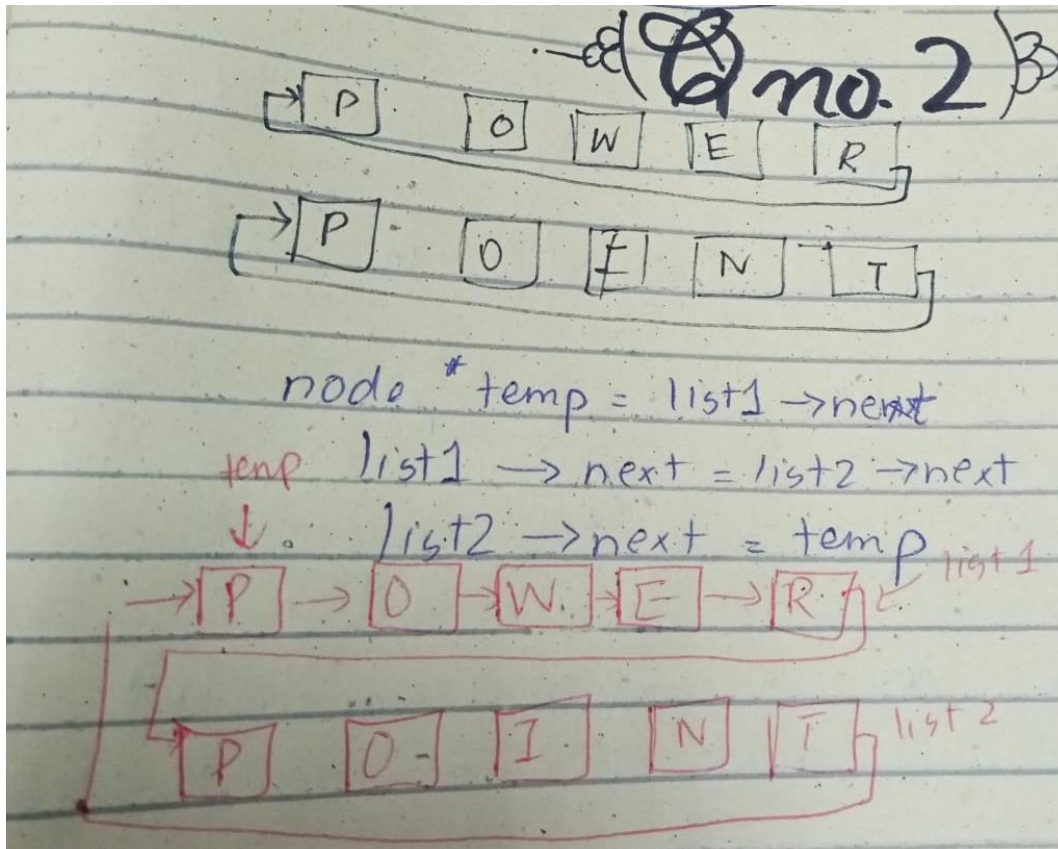 Q no. 2
P O W E R
P O I N T
node * temp = list1 → next
temp list1 → next = list2 → next
↓ list2 → next = temp
→ P → O → W. → E → R ← list 1
P O I N T list 2